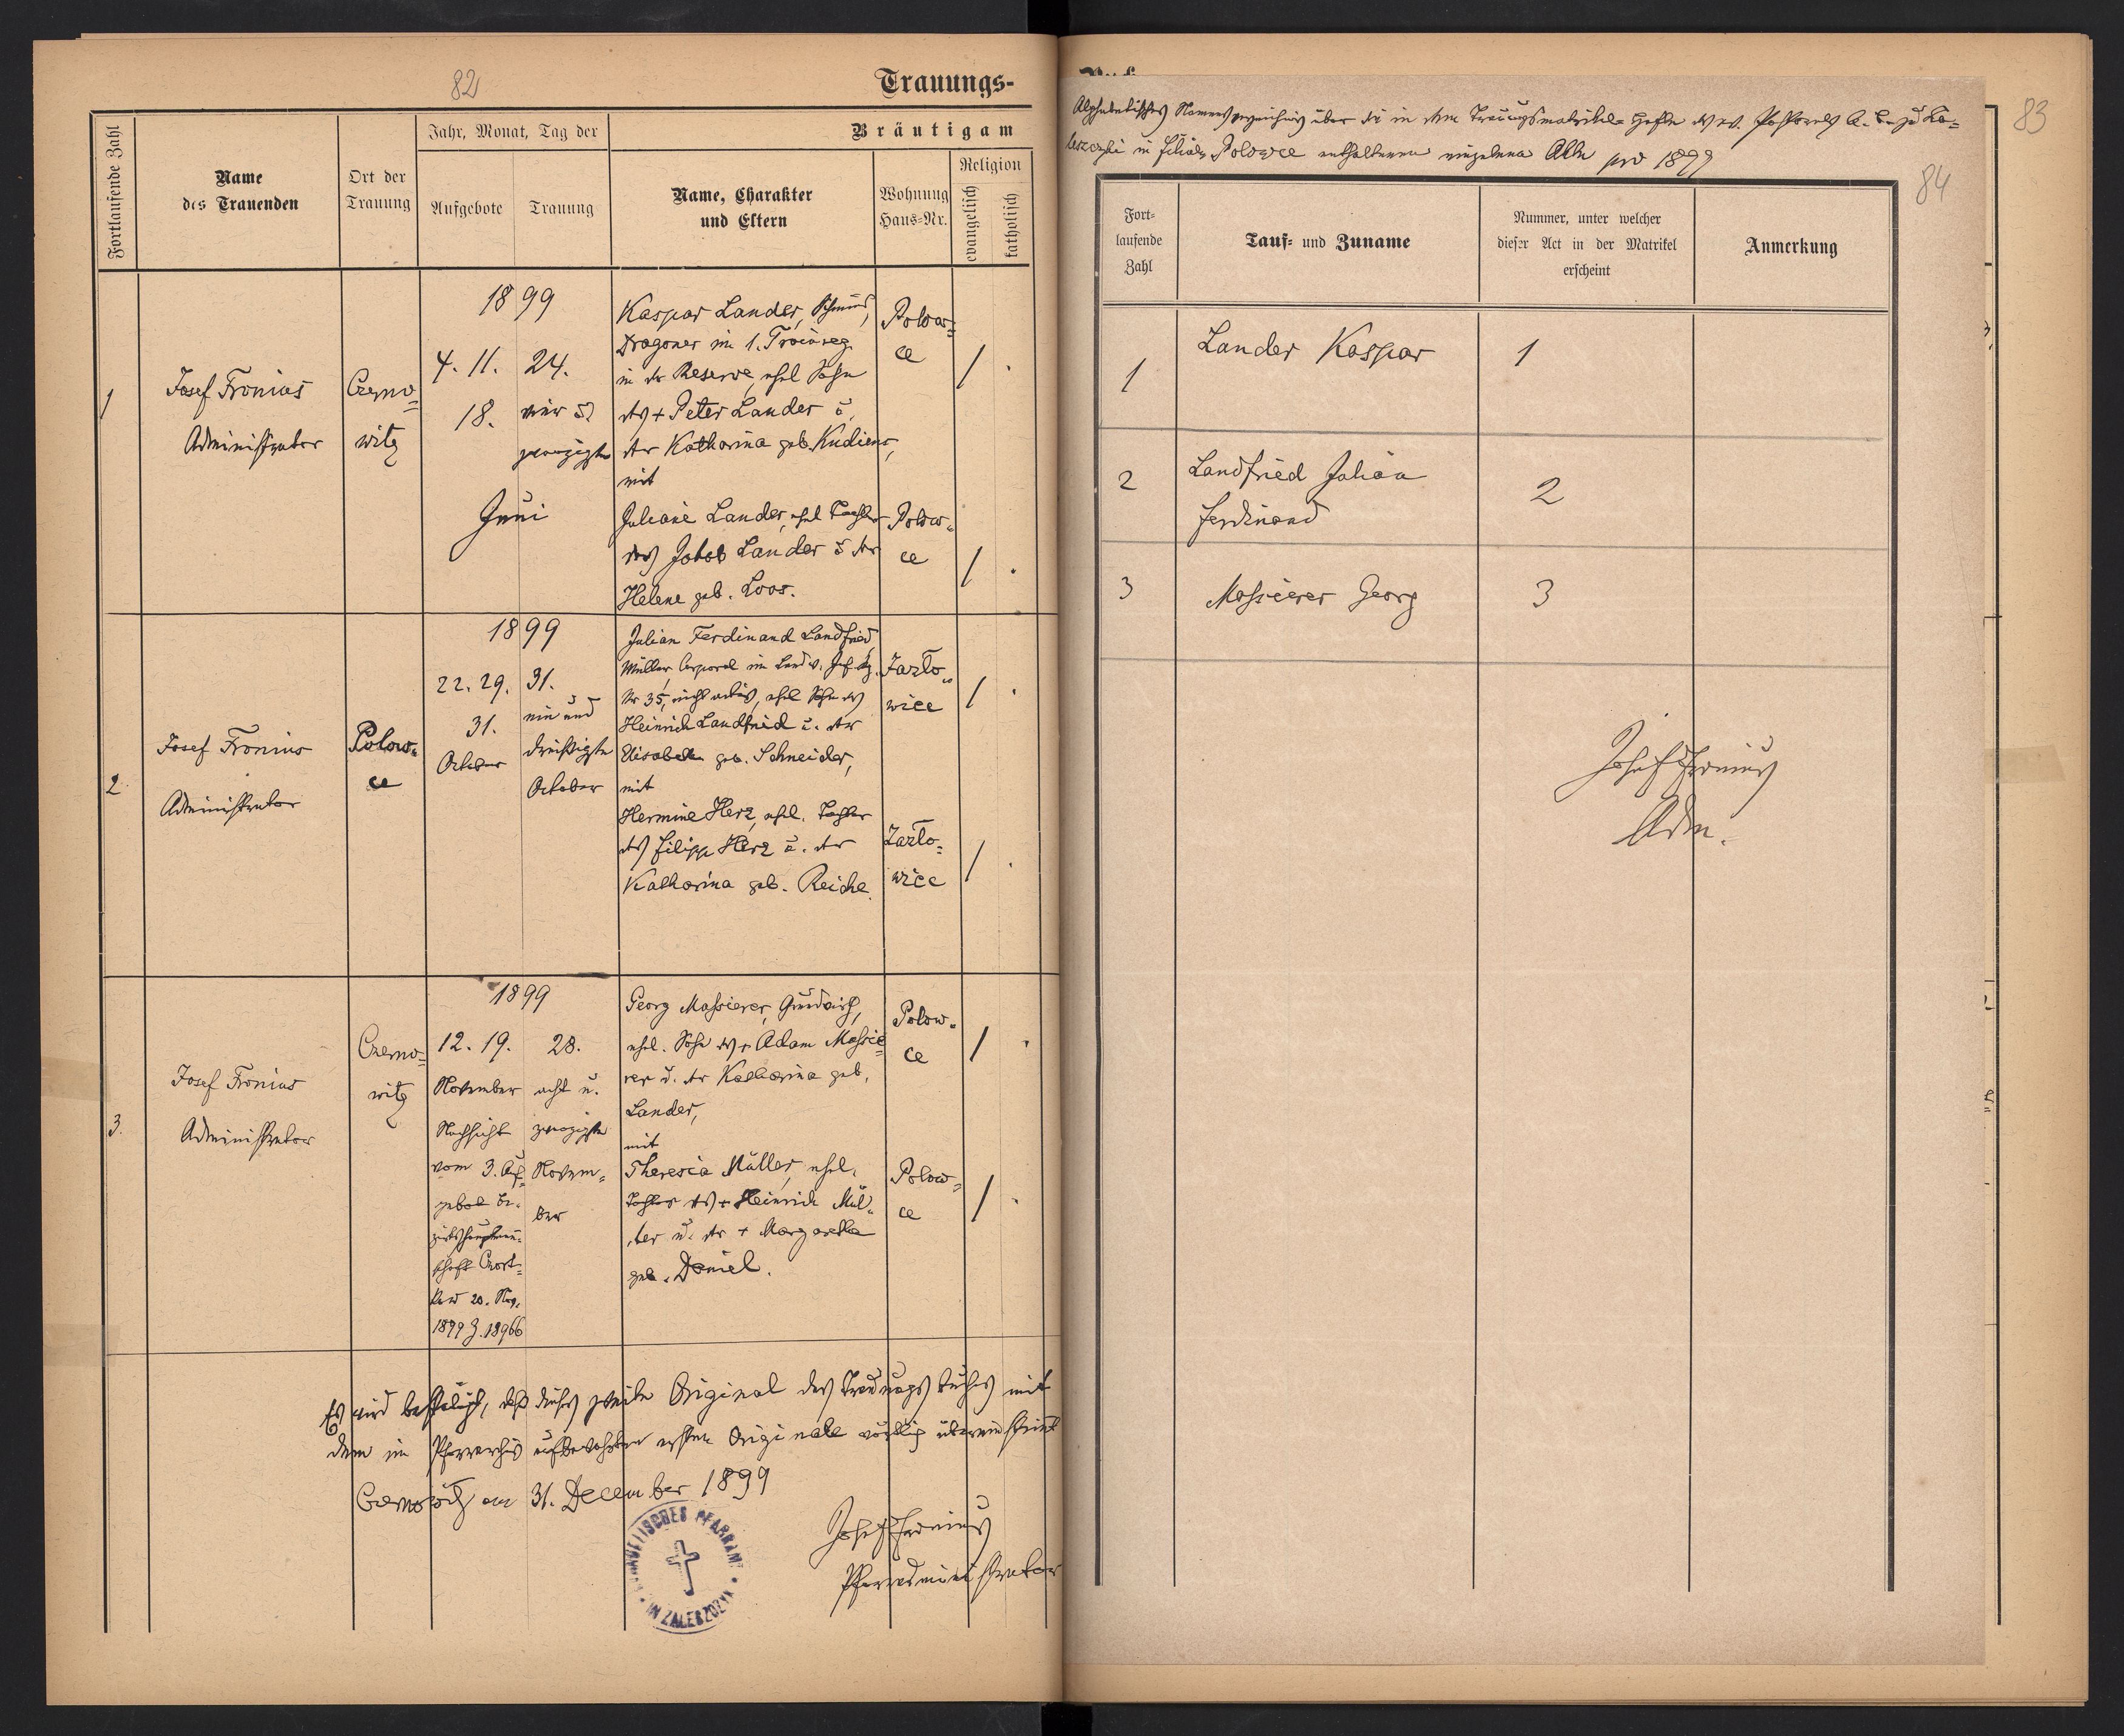 82
Trauungs-
Fortlaufende Zahl
Name
des Trauenden
Ort der
Trauung
Jahr, Monat, Tag der
Aufgebote
Trauung
Bräutigam
Name, Charakter
und Eltern
Wohnung
Haus-Nr.
Religion
evangelisch
katholisch
1
Josef Fronius
Administrator
Czerno=
witz
1899
4. 11.
18.
24.
vier u
zwanzigste
Juni
Kaspar Lander, Schmied,
Dragoner im 1.
in der Reserve, ehel Sohn
des + Peter Lander u.
der Katharina geb. Kudiens,
mit
Juliane Lander, ehel Tochter
des Jakob Lander u der
Helene geb. Loos.
Polow=
ce
/ .
Polow=
ce
/ .
2
Josef Fronius
Administrator
Polow=
ce
1899
22. 29.
31.
October
31.
ein und
dreißigste
October
Julian Ferdinand Landfried
Müller, Corporal im Landw. Inf. Rg.
Nr 35, nicht activ, ehel Sohn des
Heinrich Landfried u. der
Elisabeth geb. Schneider,
mit
Hermine Herz, ehel. Tochter
des Filipp Herz u. der
Katharina geb. Reiche.
Jazlo=
wice
/ .
Jazlo=
wice
/ .
3.
Josef Fronius
Administrator
Czerno=
witz
1899
12. 19.
November
Nachsicht
vom 3. Auf=
gebot Be=
zirkshauptmann=
schaft Czort=
kow 20. Nov.
1899 Z. 18966
28.
acht u.
zwanzigste
Novem=
ber
Georg Massierer, Grundwirth,
ehel. Sohn des + Adam Massie=
rer u. der Katharina geb.
Lander,
mit
Theresia Müller, ehel.
Tochter des + Heinrich Mül=
ler u. der + Margaretha
geb. Daniel.
Polow=
ce
/ .
Polow=
ce
/ .
Es wird bestätigt, daß dieses zweite Original des Trauungsbuches mit
dem im Pfarrarchiv aufbewahrten ersten Originale wörtlich übereinstimmt
Czernowitz am 31. December 1899
Josef Fronius
Pfarradministrator
EVANGELISCHES PFARRAMT
IN ZALESZCZYKI
83
84
Alphabetisches Namensverzeichnis über die in dem Trauungsmatrikel-Hefte des ev. Pfarramtes A. B. zu Za=
leszczyki in Filiale Polowce enthaltenen einzelnen Akte pro 1899
Fort-
laufende
Zahl
Tauf- und Zuname
Nummer, unter welcher
dieser Act in der Matrikel
erscheint
Anmerkung
1
Lander Kaspar
1
2
Landfried Julian
Ferdinand
2
3
Massierer Georg
3
Josef Fronius
Adm.